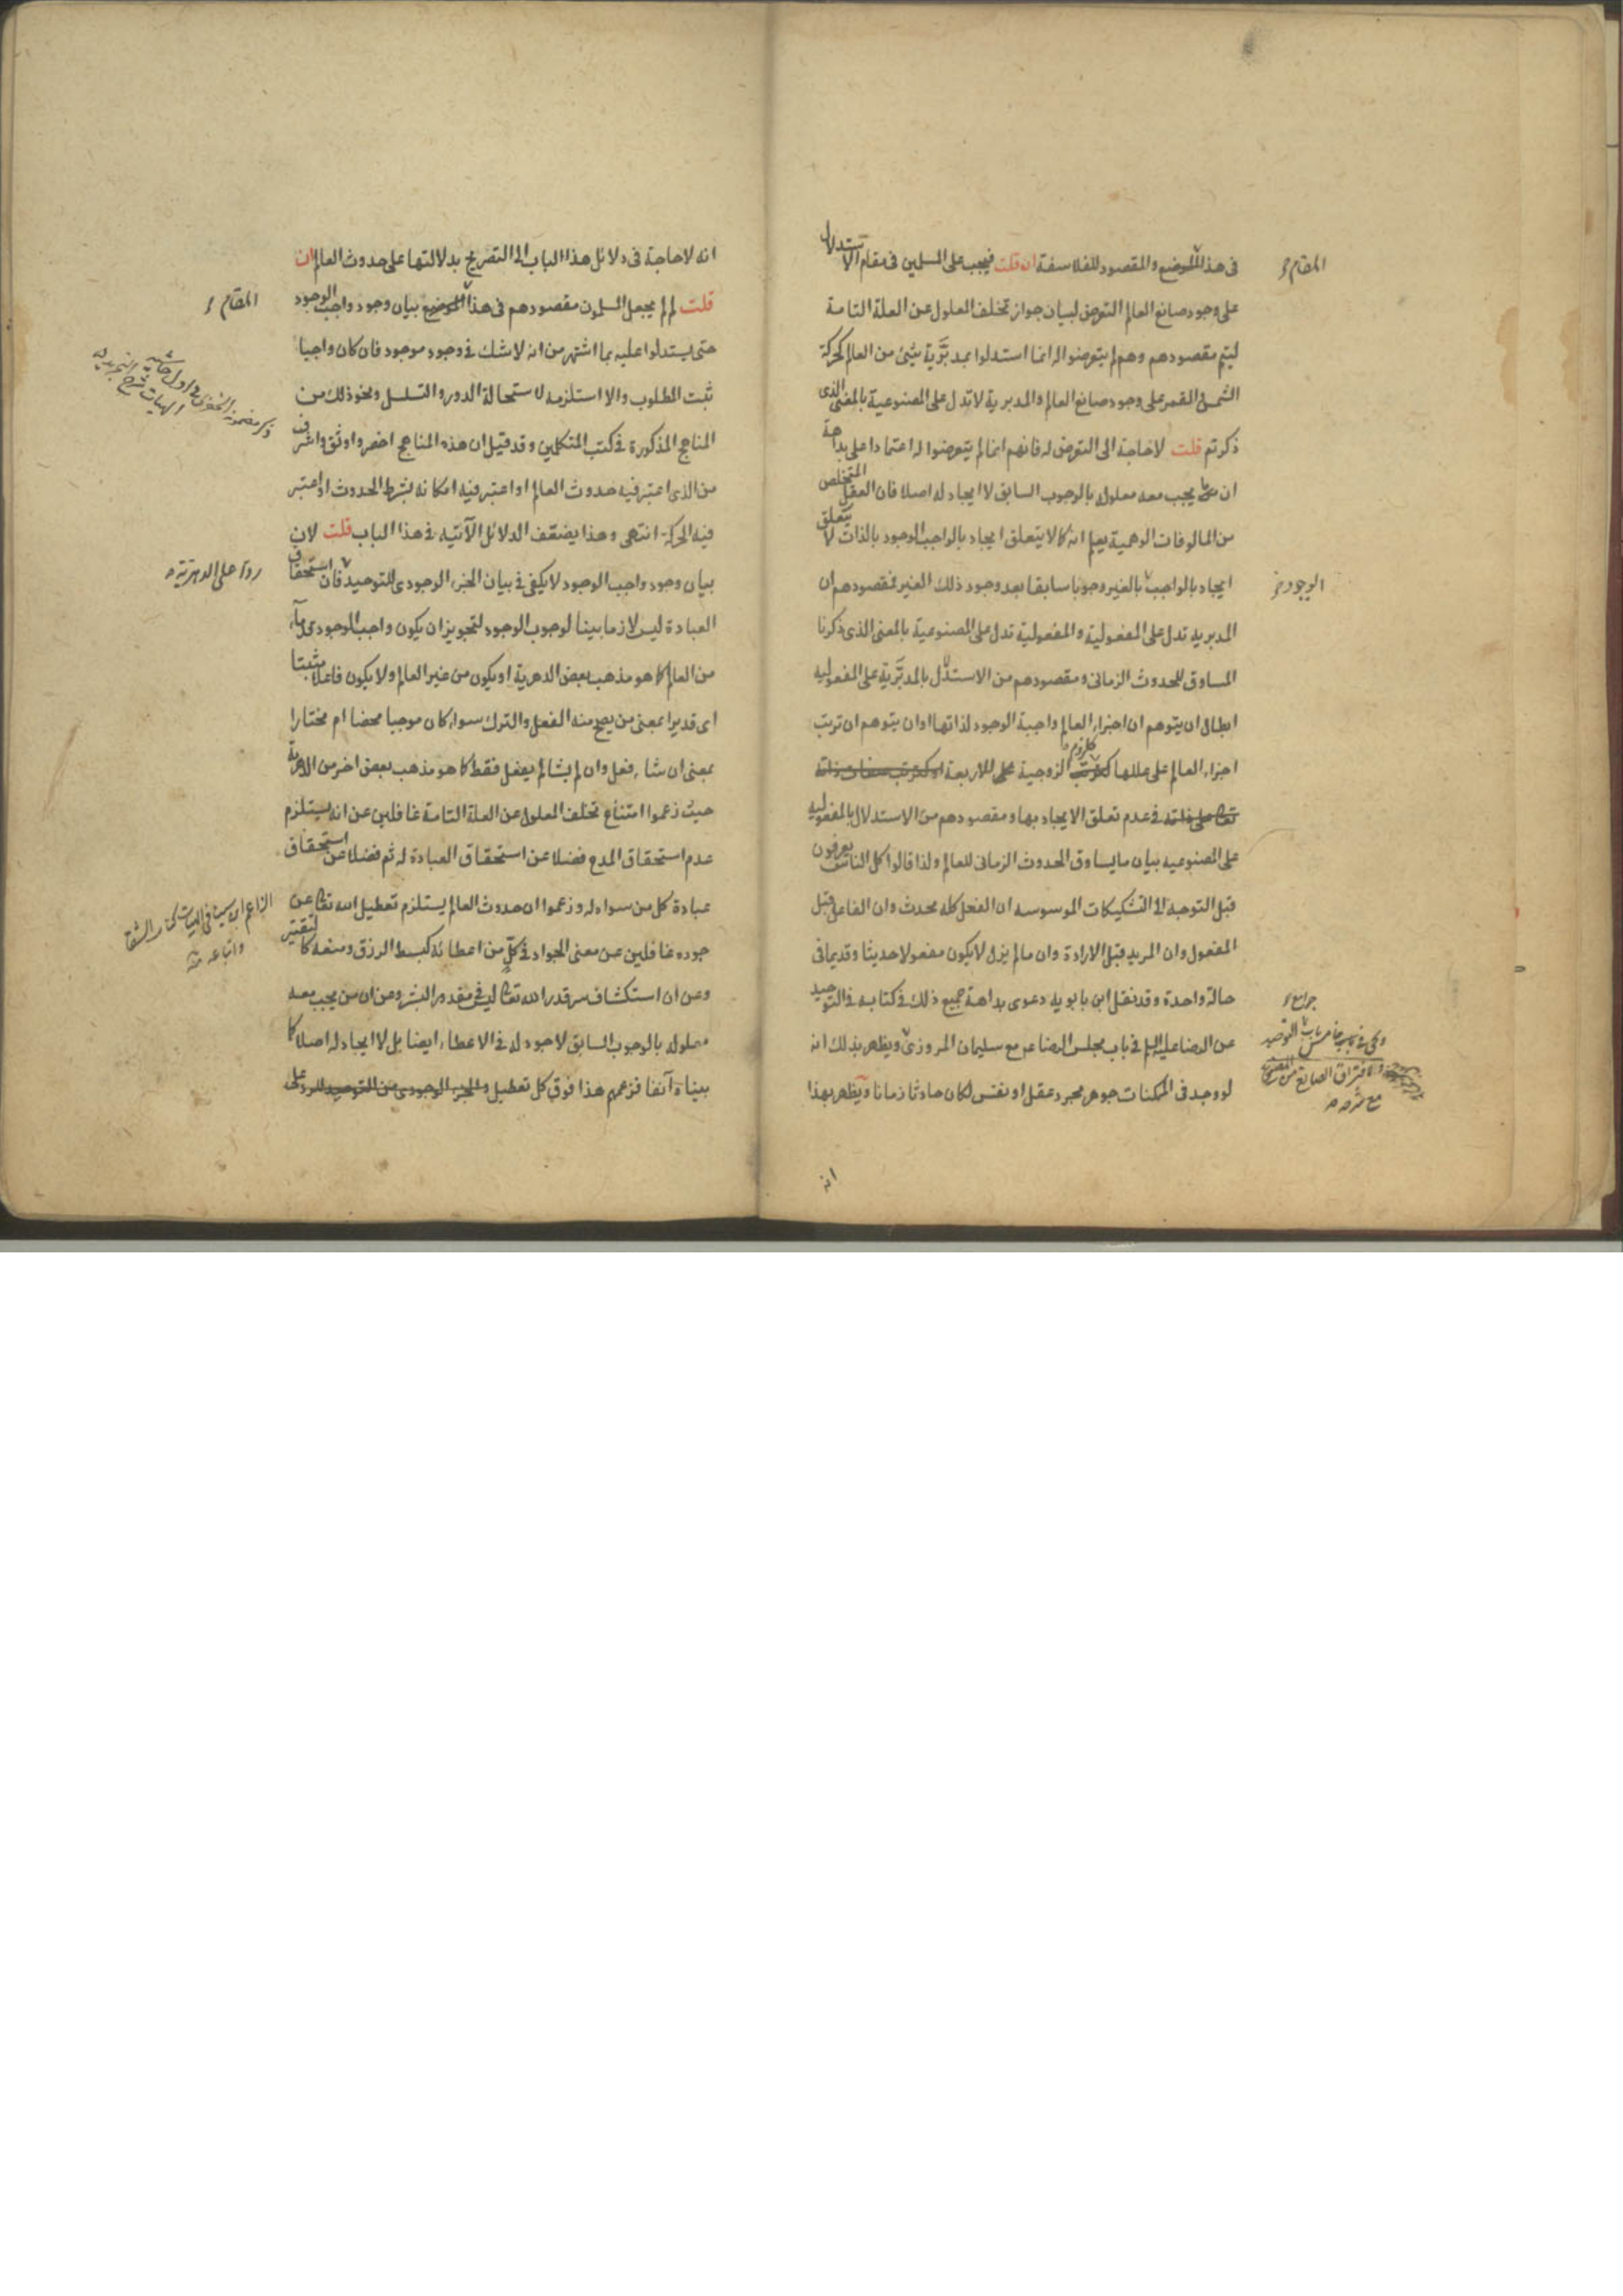 فى هذا الموضع والمقصود للفلاسفة ان قلت فيجب على المسلمين فى مقام الاستدلال
على وجود صانع العالم التعرض لبيان جواز تخلف المعلول عن العلة التامة
ليتم مقصودهم وهم لم يتعرضوا له انما استدلوا بمدبَّرية شئ من العالم كحركة
الشمس والقمر على وجود صانع العالم والمدبرية لا تدل على المصنوعية بالمعنى الذى
ذكرتم قلت لا حاجة الى التعرض له فانهم انما لم يتعرضوا له اعتمادا على بداهة
ان ما يجب معه معلوله بالوجوب السابق لا ايجاد له اصلا فان العقل المتخلص
من المالوفات الوهمية يعلم انه كما لا يتعلق ايجاد بالواجب الوجود بالذات لا يتعلق
ايجاد بالواجب بالغير وجوبا سابقا بعد وجود ذلك الغير فمقصودهم ان
المدبرية تدل على المفعولية والمفعولية تدل على المصنوعية بالمعنى الذى ذكرنا
المساوق للحدوث الزمانى ومقصودهم من الاستدلال بالمدبَّرية على المفعولية
ابطال ان يتوهم ان اجزاء العالم واجبة الوجود لذاتها او ان يتوهم ان ترتب
اجزاء العالم على عللها كلزوم الزوجية للاربعة
فى عدم تعلق الايجاد بها ومقصودهم من الاستدلال بالمفعولية
على المصنوعيه بيان ما يساوق الحدوث الزمانى للعالم ولذا قالوا كل الناس يعرفون
قبل التوجه الى التشكيكات الموسوسه ان الفعل كله محدث وان الفاعل قبل
المفعول وان المريد قبل الارادة وان مالم يزل لا يكون مفعولا حديثا وقديما فى
حالة واحدة وقد نقل ابن بابويه دعوى بداهة جميع ذلك فى كتابه فى التوحيد
عن الرضا عليه السلم فى باب مجلس الرضا ع مع سليمان المروزى ويظهر بذلك انه
لو وجد فى الممكنات جوهر مجرد عقل او نفس لكان حادثا زمانا ويظهر بهذا
انه
المقام
الوجود
جوامع
انه لا حاجة فى دلائل هذا الباب الى التصريح بدلالتها على حدوث العالم ان
قلت لم لم يجعل المسلمون مقصودهم فى هذا الموضع بيان وجود واجب الوجود
حتى يستدلوا عليه بما اشتهر من انه لا شك فى وجود موجود فان كان واجبا
ثبت المطلوب والا استلزمه لاستحالة الدور والتسلسل ونحو ذلك من
المناهج المذكورة فى كتب المتكلمين وقد قيل ان هذه المناهج اخصر واوثق واشرف
من الذى اعتبر فيه حدوث العالم او اعتبر فيه امكانه بشرط الحدوث او اعتبر
فيه الحركة انتهى وهذا يضعّف الدلائل الآتيه فى هذا الباب قلت لان
بيان وجود واجب الوجود لا يكفى فى بيان الجزء الوجودى للتوحيد فان استحقاق
العبادة ليس لازما بينا لوجوب الوجود لتجويز ان يكون واجب الوجود
من العالم كما هو مذهب بعض الدهرية او يكون من غير العالم ولا يكون فاعلا
اى قديرا بمعنى من يصح منه الفعل والترك سواء كان موجبا محضا ام مختارا
بمعنى ان شاء فعل وان لم يشا لم يفعل فقط كما هو مذهب بعض اخر من الدهرية
حيث زعموا امتناع تخلف المعلول عن العلة التامة غافلين عن انه يستلزم
عدم استحقاق المدح فضلا عن استحقاق العبادة له ثم فضلا عن استحقاق
عبادة كل من سواه له وزعموا ان حدوث العالم يستلزم تعطيل الله تعالى عن
جوده غافلين عن معنى الجواد فى كلّ من اعطائه كبسط الرزق ومنعه كالتقتير
وعن ان استكشاف سر قدر الله تعالى ليس فى مقدور البشر وعن ان من يجب معه
معلوله بالوجوب السابق لا جود له فى الاعطاء ايضا بل لا ايجاد له اصلا كما
بيناه آنفا فزعمهم هذا فوق كل تعطيل
المقام
ردا على الدهرية
الزاعم ابن سينا فى الهيات كتاب الشفا
واتباعه منه